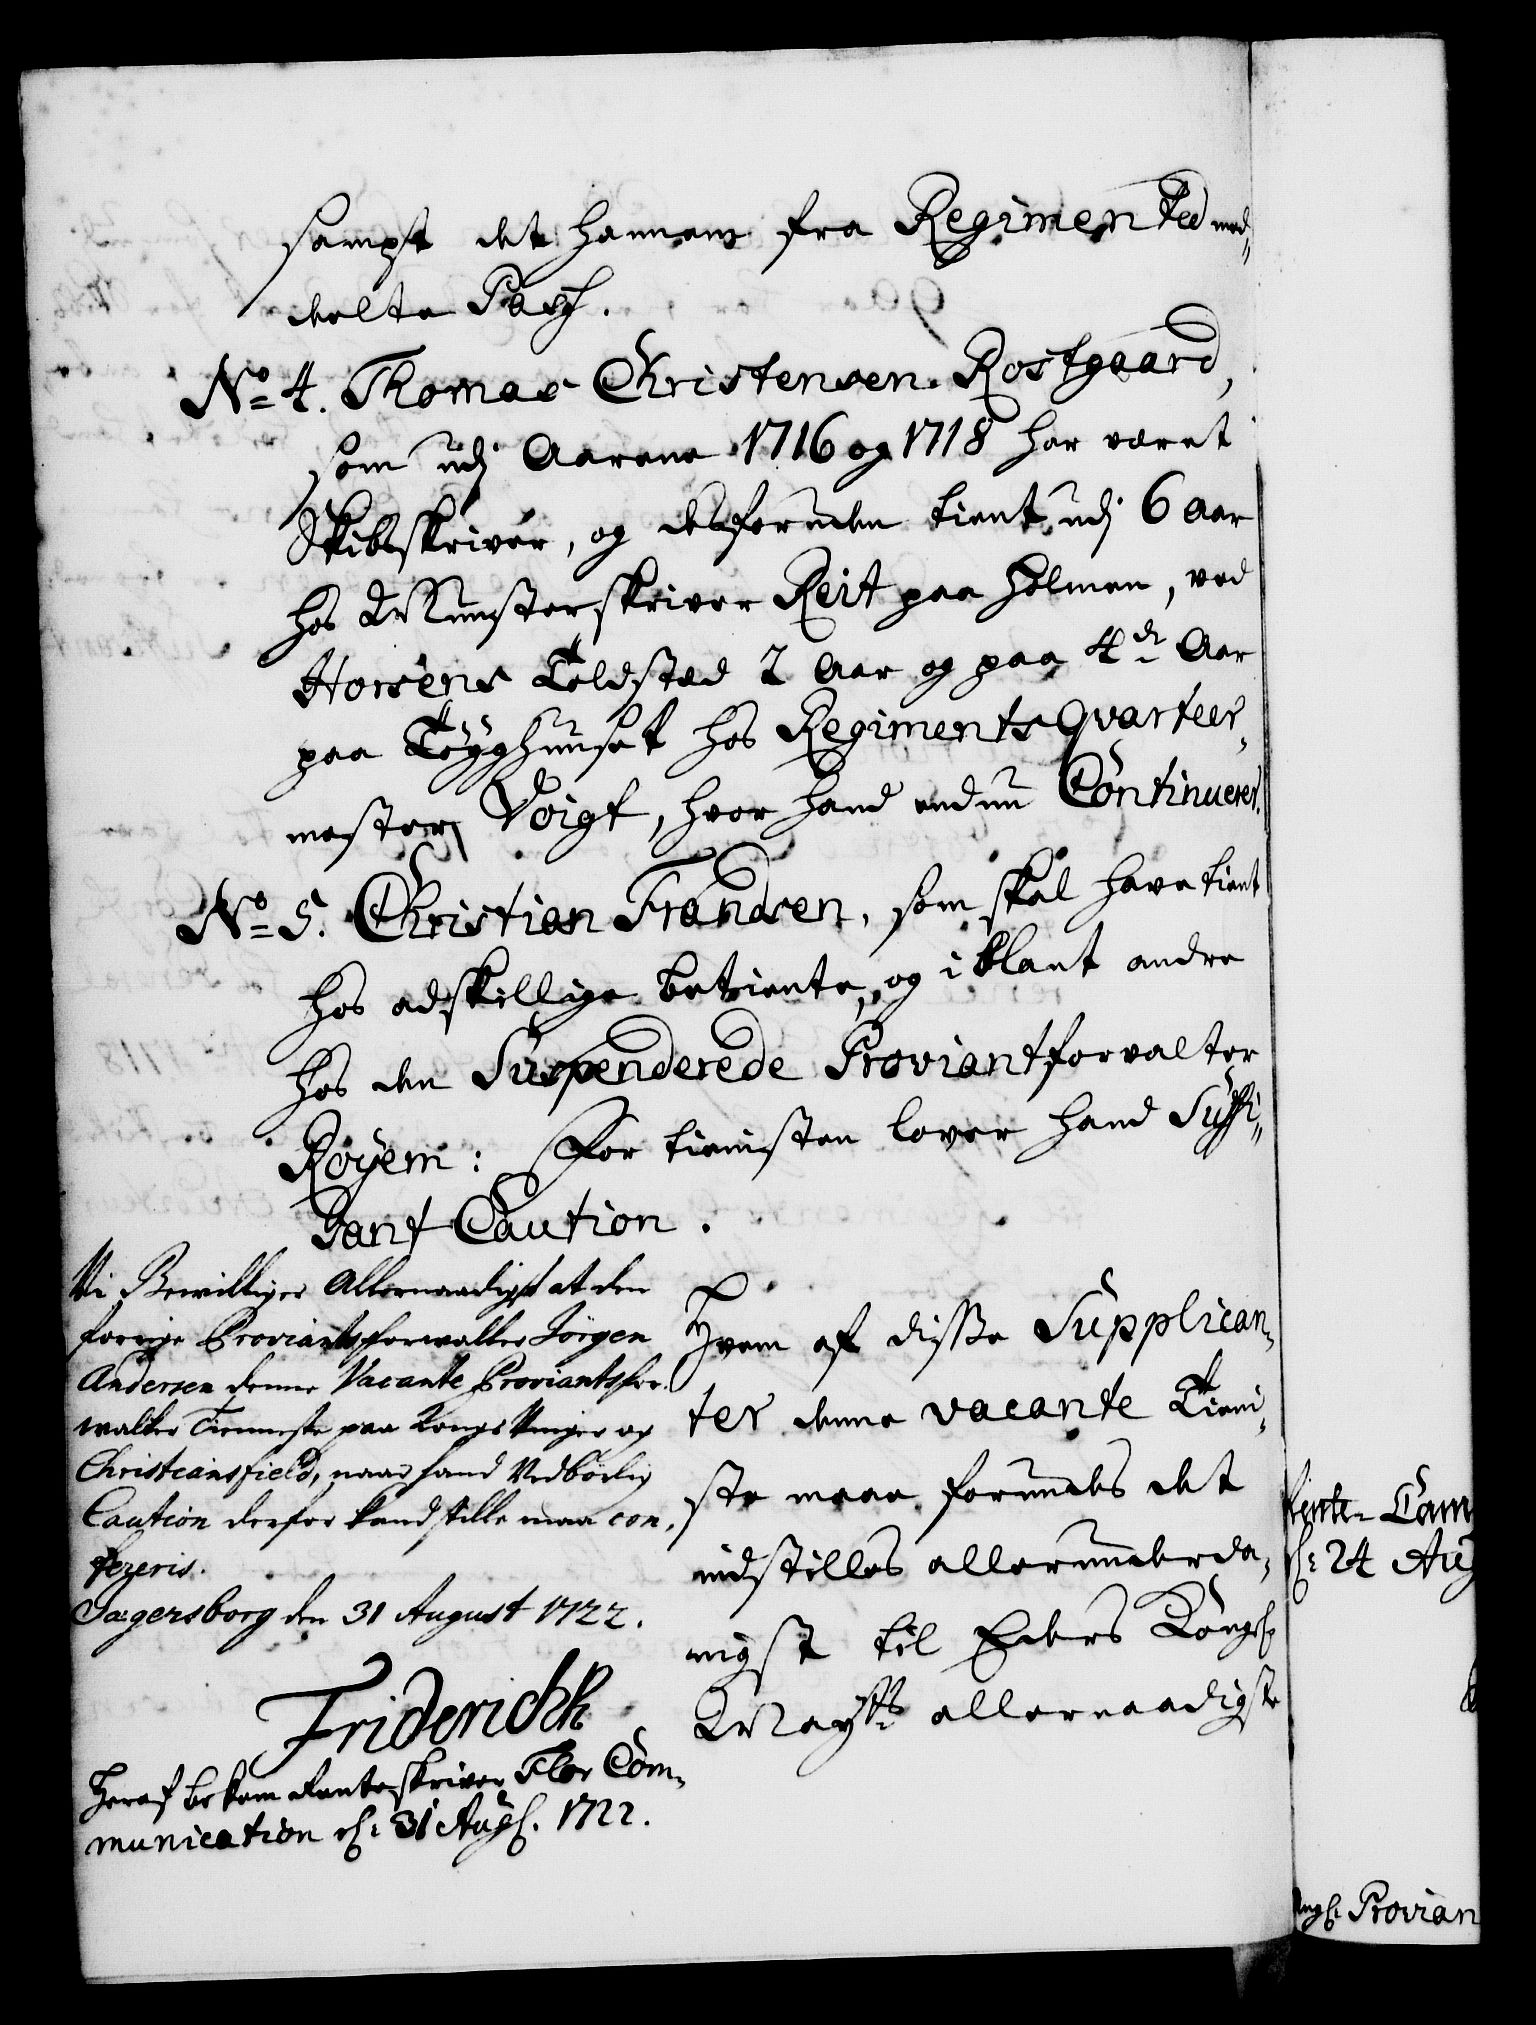 sampt det hannem fra Regimented med¬
delte Pasz.
No= 4. Thomas Christensen Rostgaard,
som udj Aarene 1716 og 1718 har været
Skibskriver, og desforuden tient udj 6 Aar
hos Munsterskriver Reit paa Holmen, ved
Horsens Toldsted 2 Aar og paa 4de Aar
paa Töyghuuset hos Regiments Qvarteer¬
mester Voigt, hvor hand endnu Continuerer.
No= 5. Christian Frandsen, som skal have tient
hos adskillige betiente, og iblant andre
hos den Suspenderede Proviantforvalter
Röyem: For tienisten lover hand Suffi¬
sant Caution.
Hvem af disse Supplican¬
ter denne vacante Tieni¬
ste maae forundes det
indstilles allerunderda¬
nigst til Eders Kongl
Mayts allernaadigste
Vi Bewilliger Allernaadigst at den
forrige Proviantsforwalter Jörgen
Andersen denne Vacante Proviantsfor¬
walter Tienneste paa Kongs Vinger og
Christiansfield, naar hand Vedbörlig
Caution derfor kand stille maa con¬
fereris.
Jægersborg den 31 August 1722.
Friderich R
Heraf bekom Renteskriver Flor Com¬
munication d: 31 Aug: 1722.
Rente Cam
d: 24 Aug
Provian